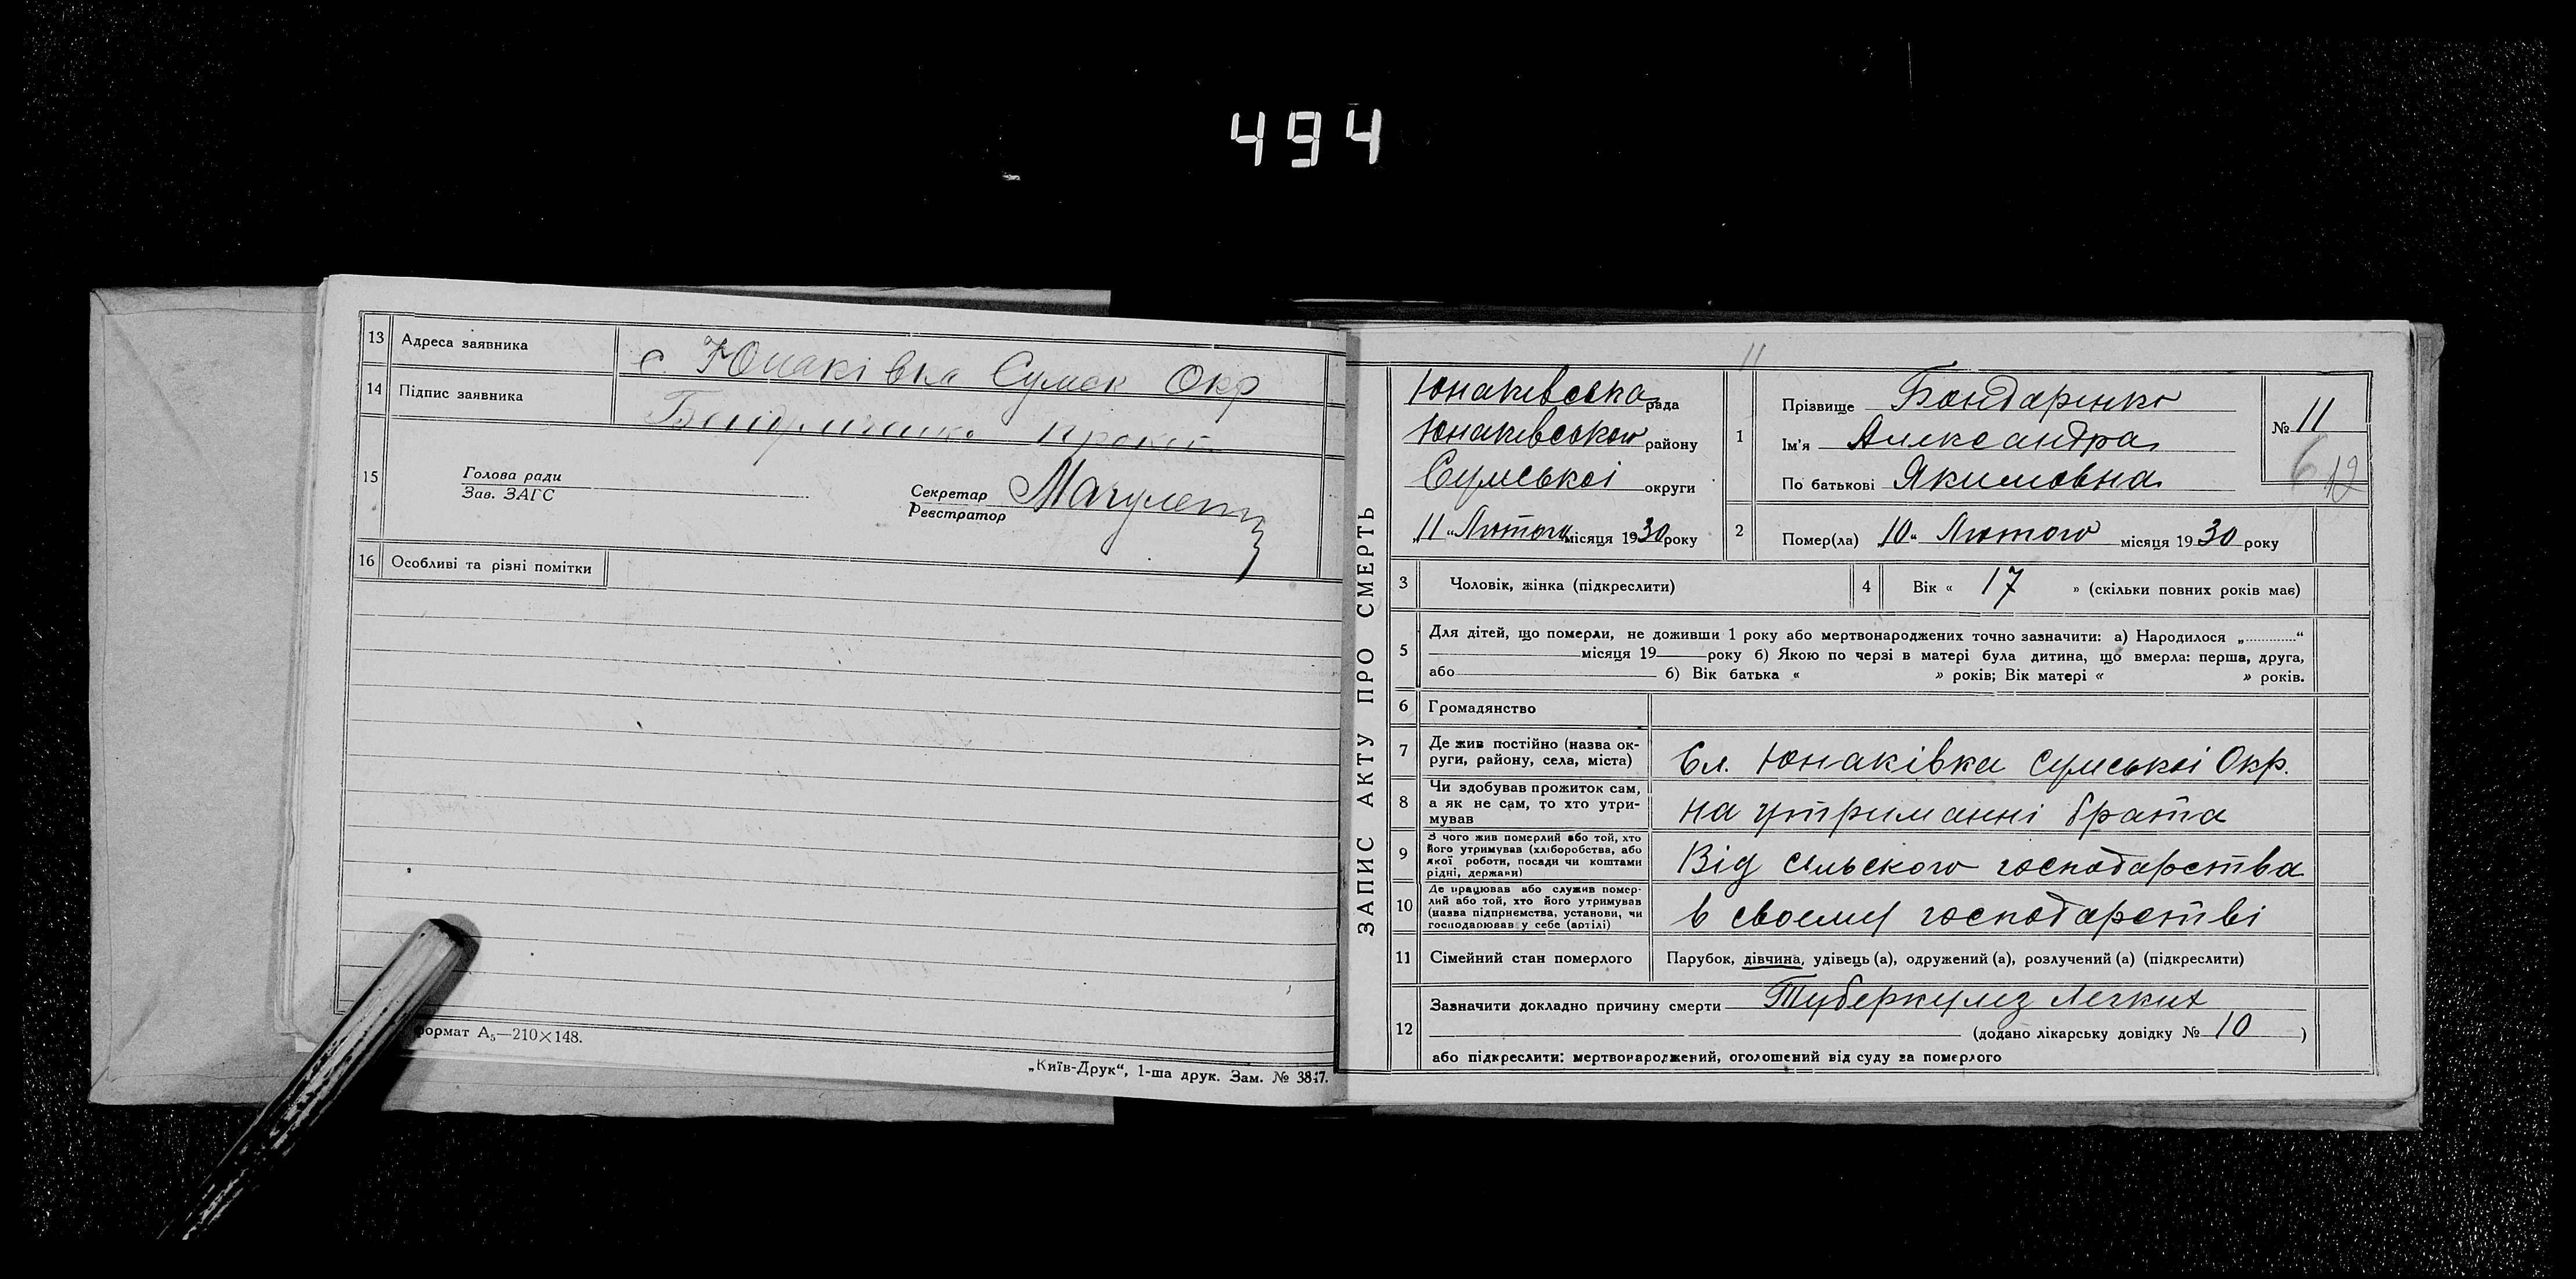 494
13 Адреса заявника с. Юнаківка Сумск Окр
14 Підпис заявника
15 Голова ради
Зав. ЗАГС
Секретар
Реєстратор
16 Особливі та різні помітки
формат А5—210×148.
„Київ-Друк“, 1-ша друк. Зам. № 3847.
ЗАПИС АКТУ ПРО СМЕРТЬ
11
Юнаківська рада
Юнаківського району
Сумської округи
„11“ Лютого місяця 1930 року
1 Прізвище Бондаренко
Ім'я Александра
По батькові Якимовна
№ 11
6 12
2 Помер(ла) „10“ Лютого місяця 1930 року
3 Чоловік, жінка (підкреслити)
4 Вік « 17 » (скільки повних років має)
5 Для дітей, що померли, не доживши 1 року або мертвонароджених точно зазначити: а) Народилося „............“
місяця 19 року б) Якою по черзі в матері була дитина, що вмерла: перша, друга,
або б) Вік батька « » років; Вік матері « » років.
6 Громадянство
7 Де жив постійно (назва ок-
руги, району, села, міста)
Сл. Юнаківка Сумської Окр.
8 Чи здобував прожиток сам,
а як не сам, то хто утри-
мував
на утриманні брата
9 З чого жив померлий або той, хто
його утримував (хліборобства, або
якої роботи, посади чи коштами
рідні, держави)
Від сільского господарства
10 Де працював або служив помер-
лий або той, хто його утримував
(назва підприємства, установи, чи
господарював у себе (артілі)
в своему господарстві
11 Сімейний стан померлого Парубок, дівчина, удівець (а), одружений (а), розлучений (а) (підкреслити)
12 Зазначити докладно причину смерти Туберкульоз Легких
(додано лікарську довідку № 10 )
або підкреслити: мертвонароджений, оголошений від суду за померлого